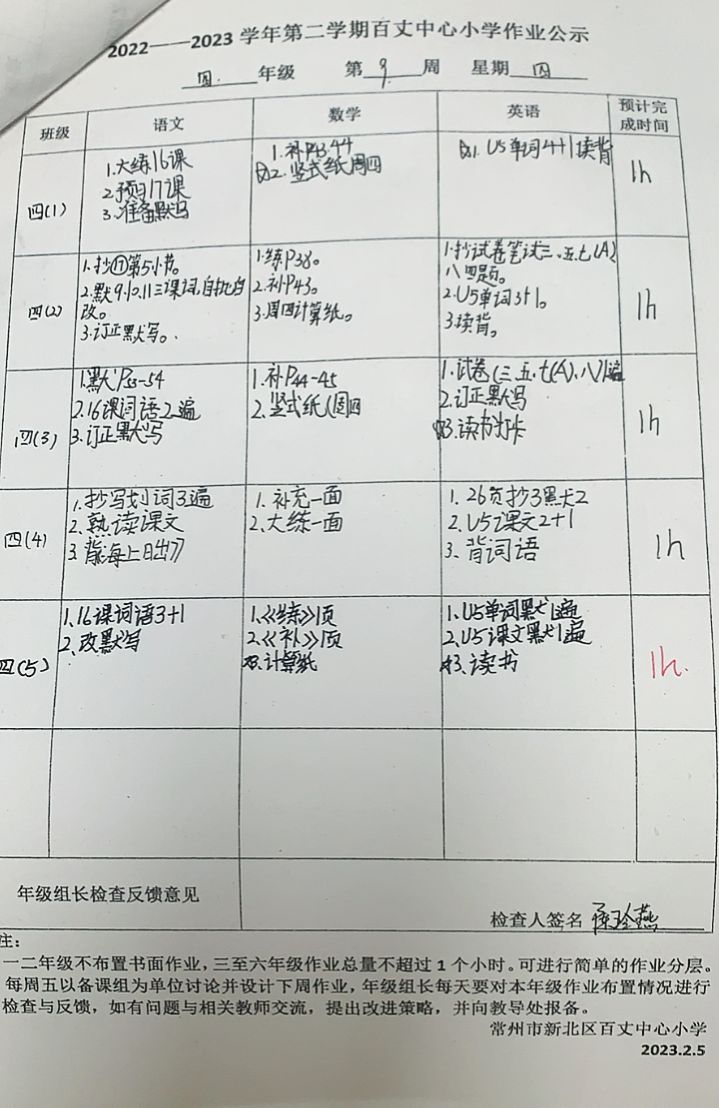 2022——2023 学年第二学期百丈中心小学作业公示
四 年级 第 9 周 星期 四
班级 语文 数学 英语 预计完成时间
四(1)
1.大练16课
2.预习17课
3.准备默写
1.补P43.44
2.竖式纸周四
1.U5单词4+1读背
1h
四(2)
1.抄⑰第5小节。
2.默9.10.11三课词,自批自改。
3.订正默写。
1.练P38。
2.补P43。
3.周四计算纸。
1.抄试卷笔试三、五、七(A)八四题。
2.U5单词3+1。
3.读背。
1h
四(3)
1.默P53-54
2.16课词语2遍
3.订正默写
1.补P44-45
2.竖式纸(周四
1.试卷(三、五、七(A)、八)1遍
2.订正默写
3.读书打卡
1h
四(4)
1.抄写划词3遍
2.熟读课文
3.背《海上日出》
1.补充一面
2.大练一面
1.26页抄3默2
2.U5课文2+1
3.背词语
1h
四(5)
1.16课词语3+1
2.改默写
1.《练》1页
2.《补》1页
3.计算纸
1.U5单词默1遍
2.U5课文默1遍
3.读书
1h.
年级组长检查反馈意见
检查人签名
注:
一二年级不布置书面作业,三至六年级作业总量不超过 1 个小时。可进行简单的作业分层。
每周五以备课组为单位讨论并设计下周作业,年级组长每天要对本年级作业布置情况进行
检查与反馈,如有问题与相关教师交流,提出改进策略,并向教导处报备。
常州市新北区百丈中心小学
2023.2.5